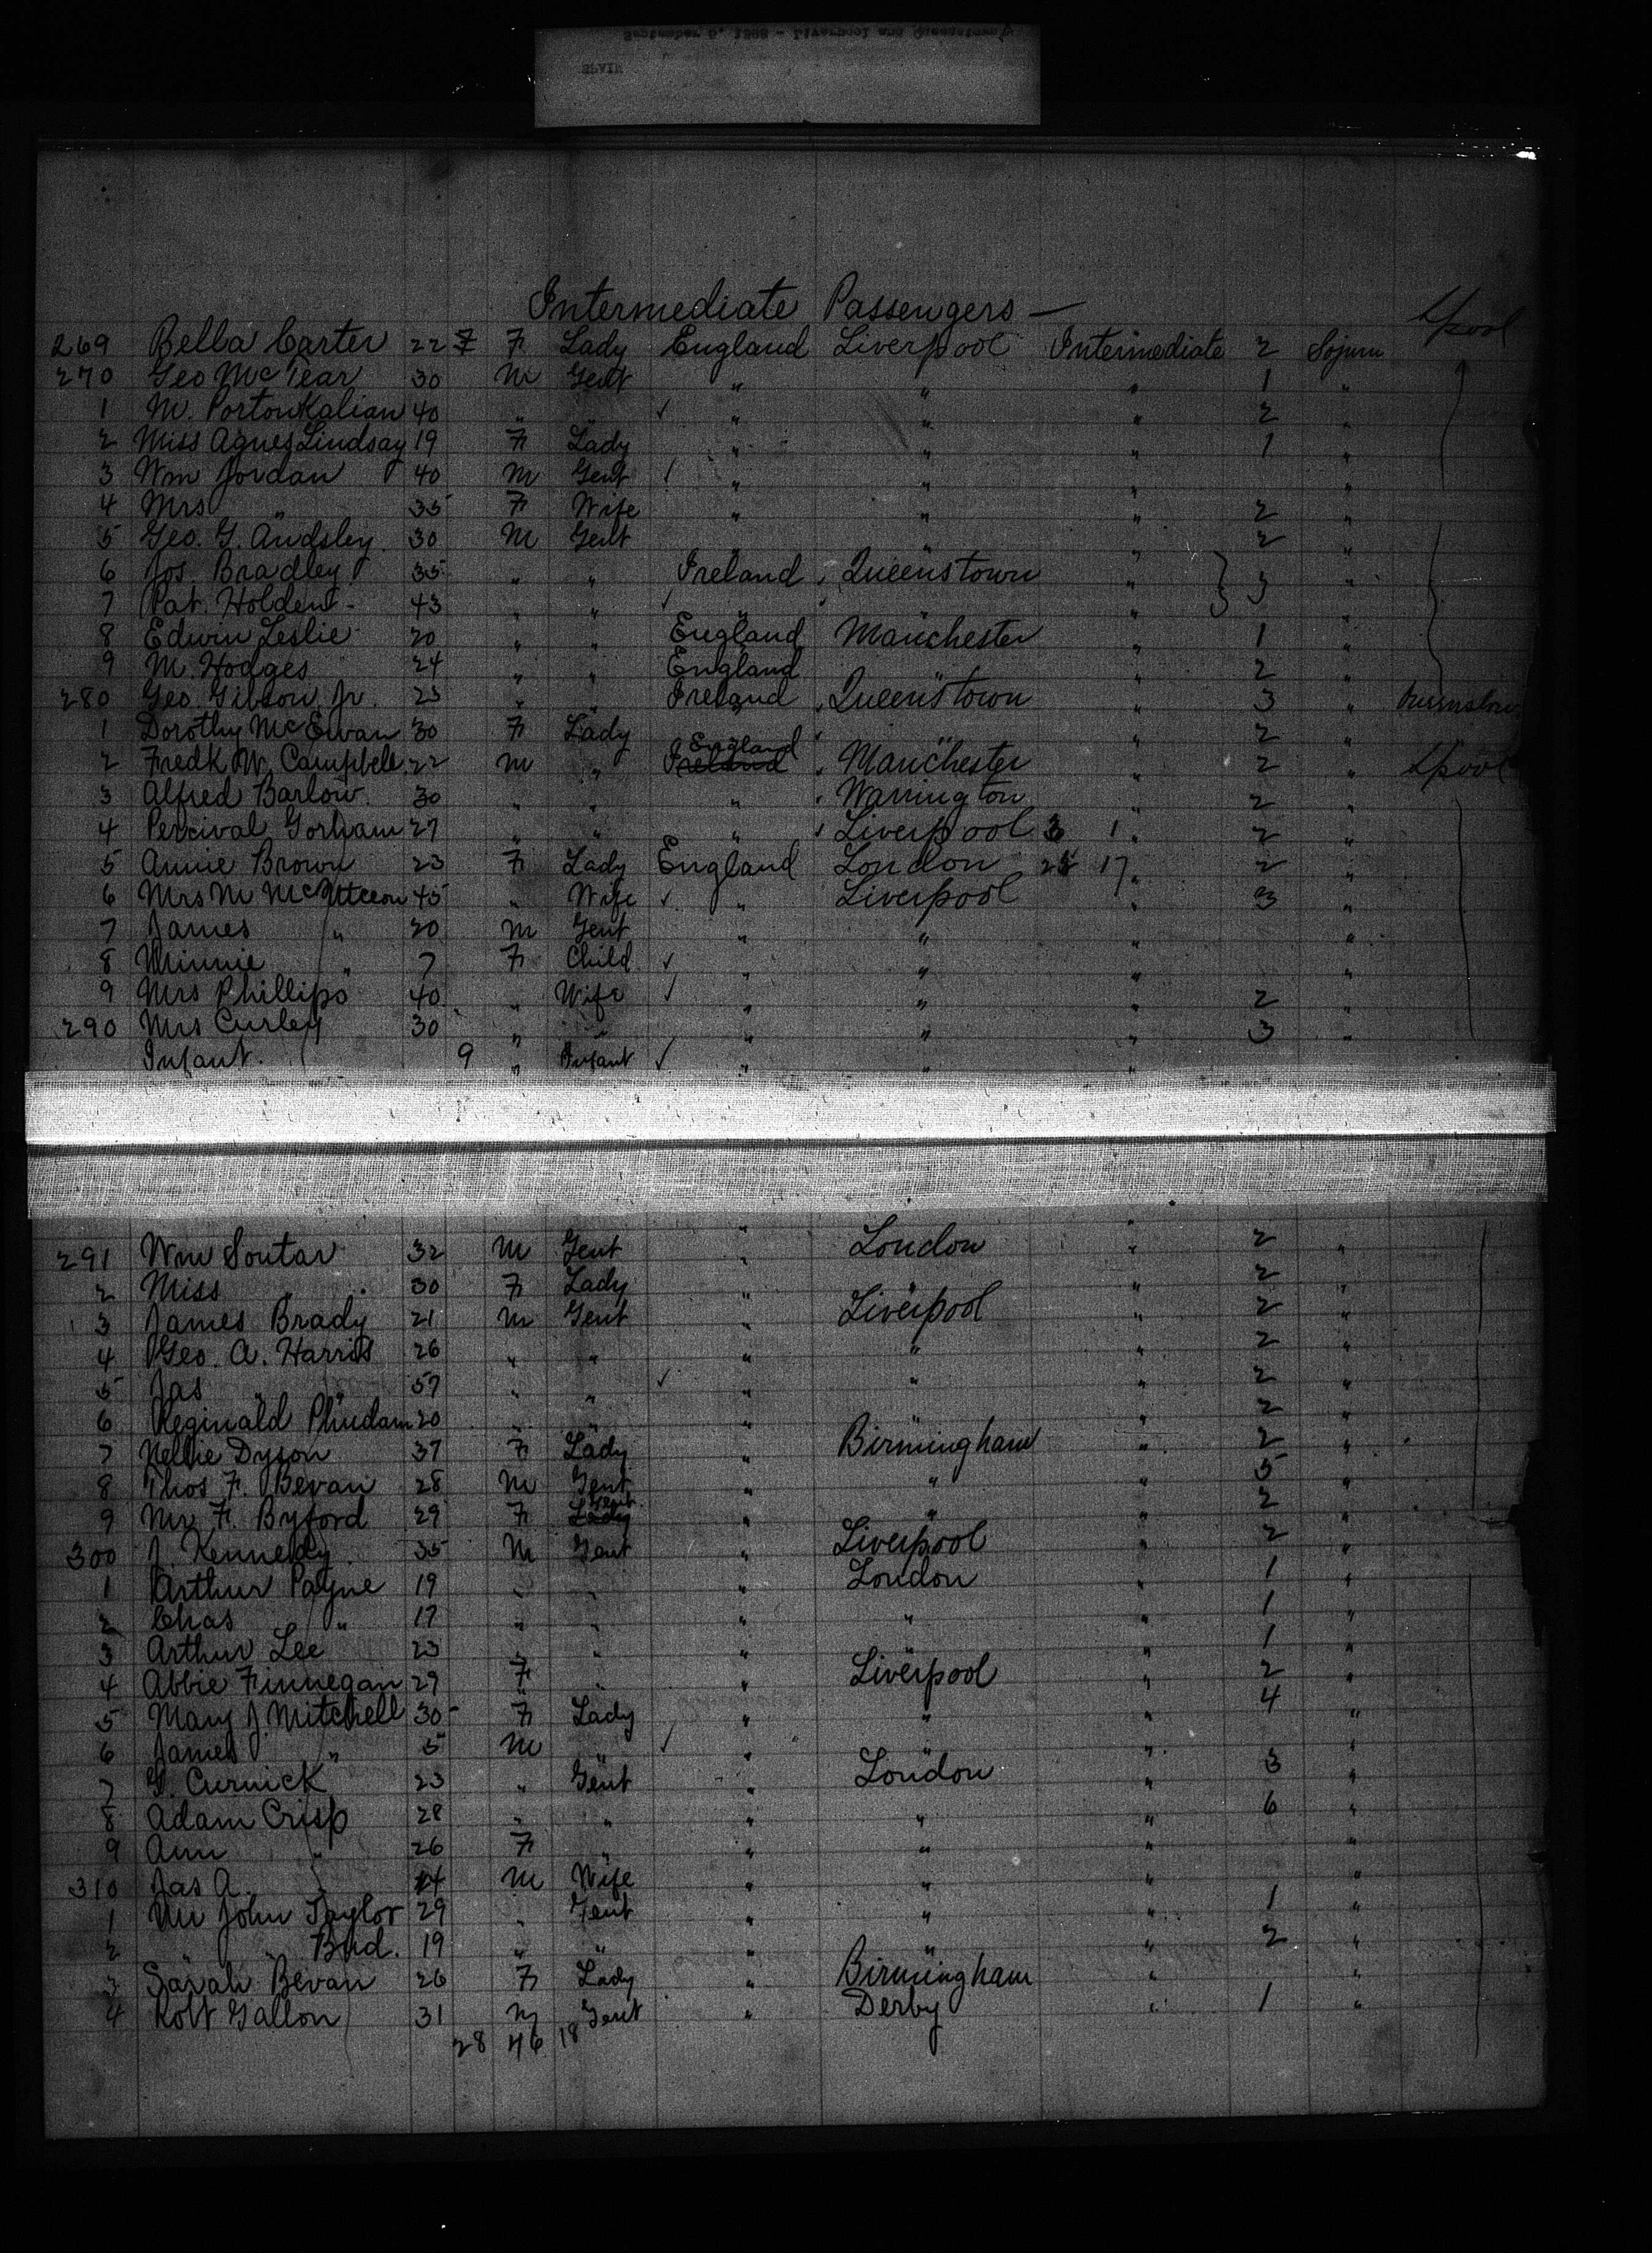 September 6, 1888 - Liverpool and Queenstown
SPAIN
Intermediate Passengers —
L'pool
269 Bella Carter 22 F F Lady England Liverpool Intermediate 2 Sojurn
270 Geo McTear 30 M Gent " " " 1 "
1 M. Portoukalian 40 " " ✓ " " " 2 "
2 Miss Agnes Lindsay 19 F Lady " " " 1 "
3 Wm Jordan 40 M Gent / " " " "
4 Mrs " 35 F Wife " " " 2 "
5 Geo. G. Audsley 30 M Gent " " " 2 "
6 Jos. Bradley 35 " " Ireland Queenstown " } 3 "
7 Pat. Holden - 43 " " ✓ " " "
8 Edwin Leslie 20 " " England Manchester " 1 "
9 M. Hodges 24 " " England " " 2 "
280 Geo. Gibson Jr. 23 " " Ireland Queenstown " 3 " Queenstown
1 Dorothy McEwan 30 F Lady " " " 2 "
2 Fredk W. Campbell 22 M " England Ireland Manchester " 2 " L'pool
3 Alfred Barlow 30 " " " Warrington " 2 "
4 Percival Gorham 27 " " " Liverpool 3 1 " 2 "
5 Annie Brown 23 F Lady England London 25 17 " 2 "
6 Mrs M 45 " Wife ✓ " Liverpool " 3 "
7 James " 20 M Gent " " " "
8 Minnie " 7 F Child ✓ " " " "
9 Mrs Phillips 40 " Wife ✓ " " " 2 "
290 Mrs Curley 30 " " " " " 3 "
Infant 9 " Infant ✓ " " "
291 Wm Soutar 32 M Gent " London " 2 "
2 Miss " 30 F Lady " " " 2 "
3 James Brady 21 M Gent " Liverpool " 2 "
4 Geo. A. Harris 26 " " " " " 2 "
5 Jas " " 57 " " ✓ " " " 2 "
6 Reginald 20 " " " " " 2 "
7 Nellie Dyson 37 F Lady " Birmingham " 2 "
8 Thos F. Bevan 28 M Gent " " " 5 "
9 Mr F. Byford 29 F Gent Lady " " " 2 "
300 J. Kennedy 35 M Gent " Liverpool " 2 "
1 Arthur Payne 19 " " " London " 1 "
2 Chas " 17 " " " " " 1 "
3 Arthur Lee 23 " " " " " 1 "
4 Abbie Finnegan 29 F " " Liverpool " 2 "
5 Mary J. Mitchell 30 F Lady " " " 4 "
6 James " 5 M " ✓ " " " "
7 G. Curnick 23 " Gent " London " 3 "
8 Adam Crisp 28 " " " " " 6 "
9 Ann " 26 F " " " " "
310 Jas A. " 14 M Wife " " " "
1 Mr John Taylor 29 " Gent " " " 1 "
2 " " Bud. 19 " " " " " 2 "
3 Sarah Bevan 26 F Lady " Birmingham " "
4 Robt Gallon 31 M Gent " Derby " 1 "
28 46 18